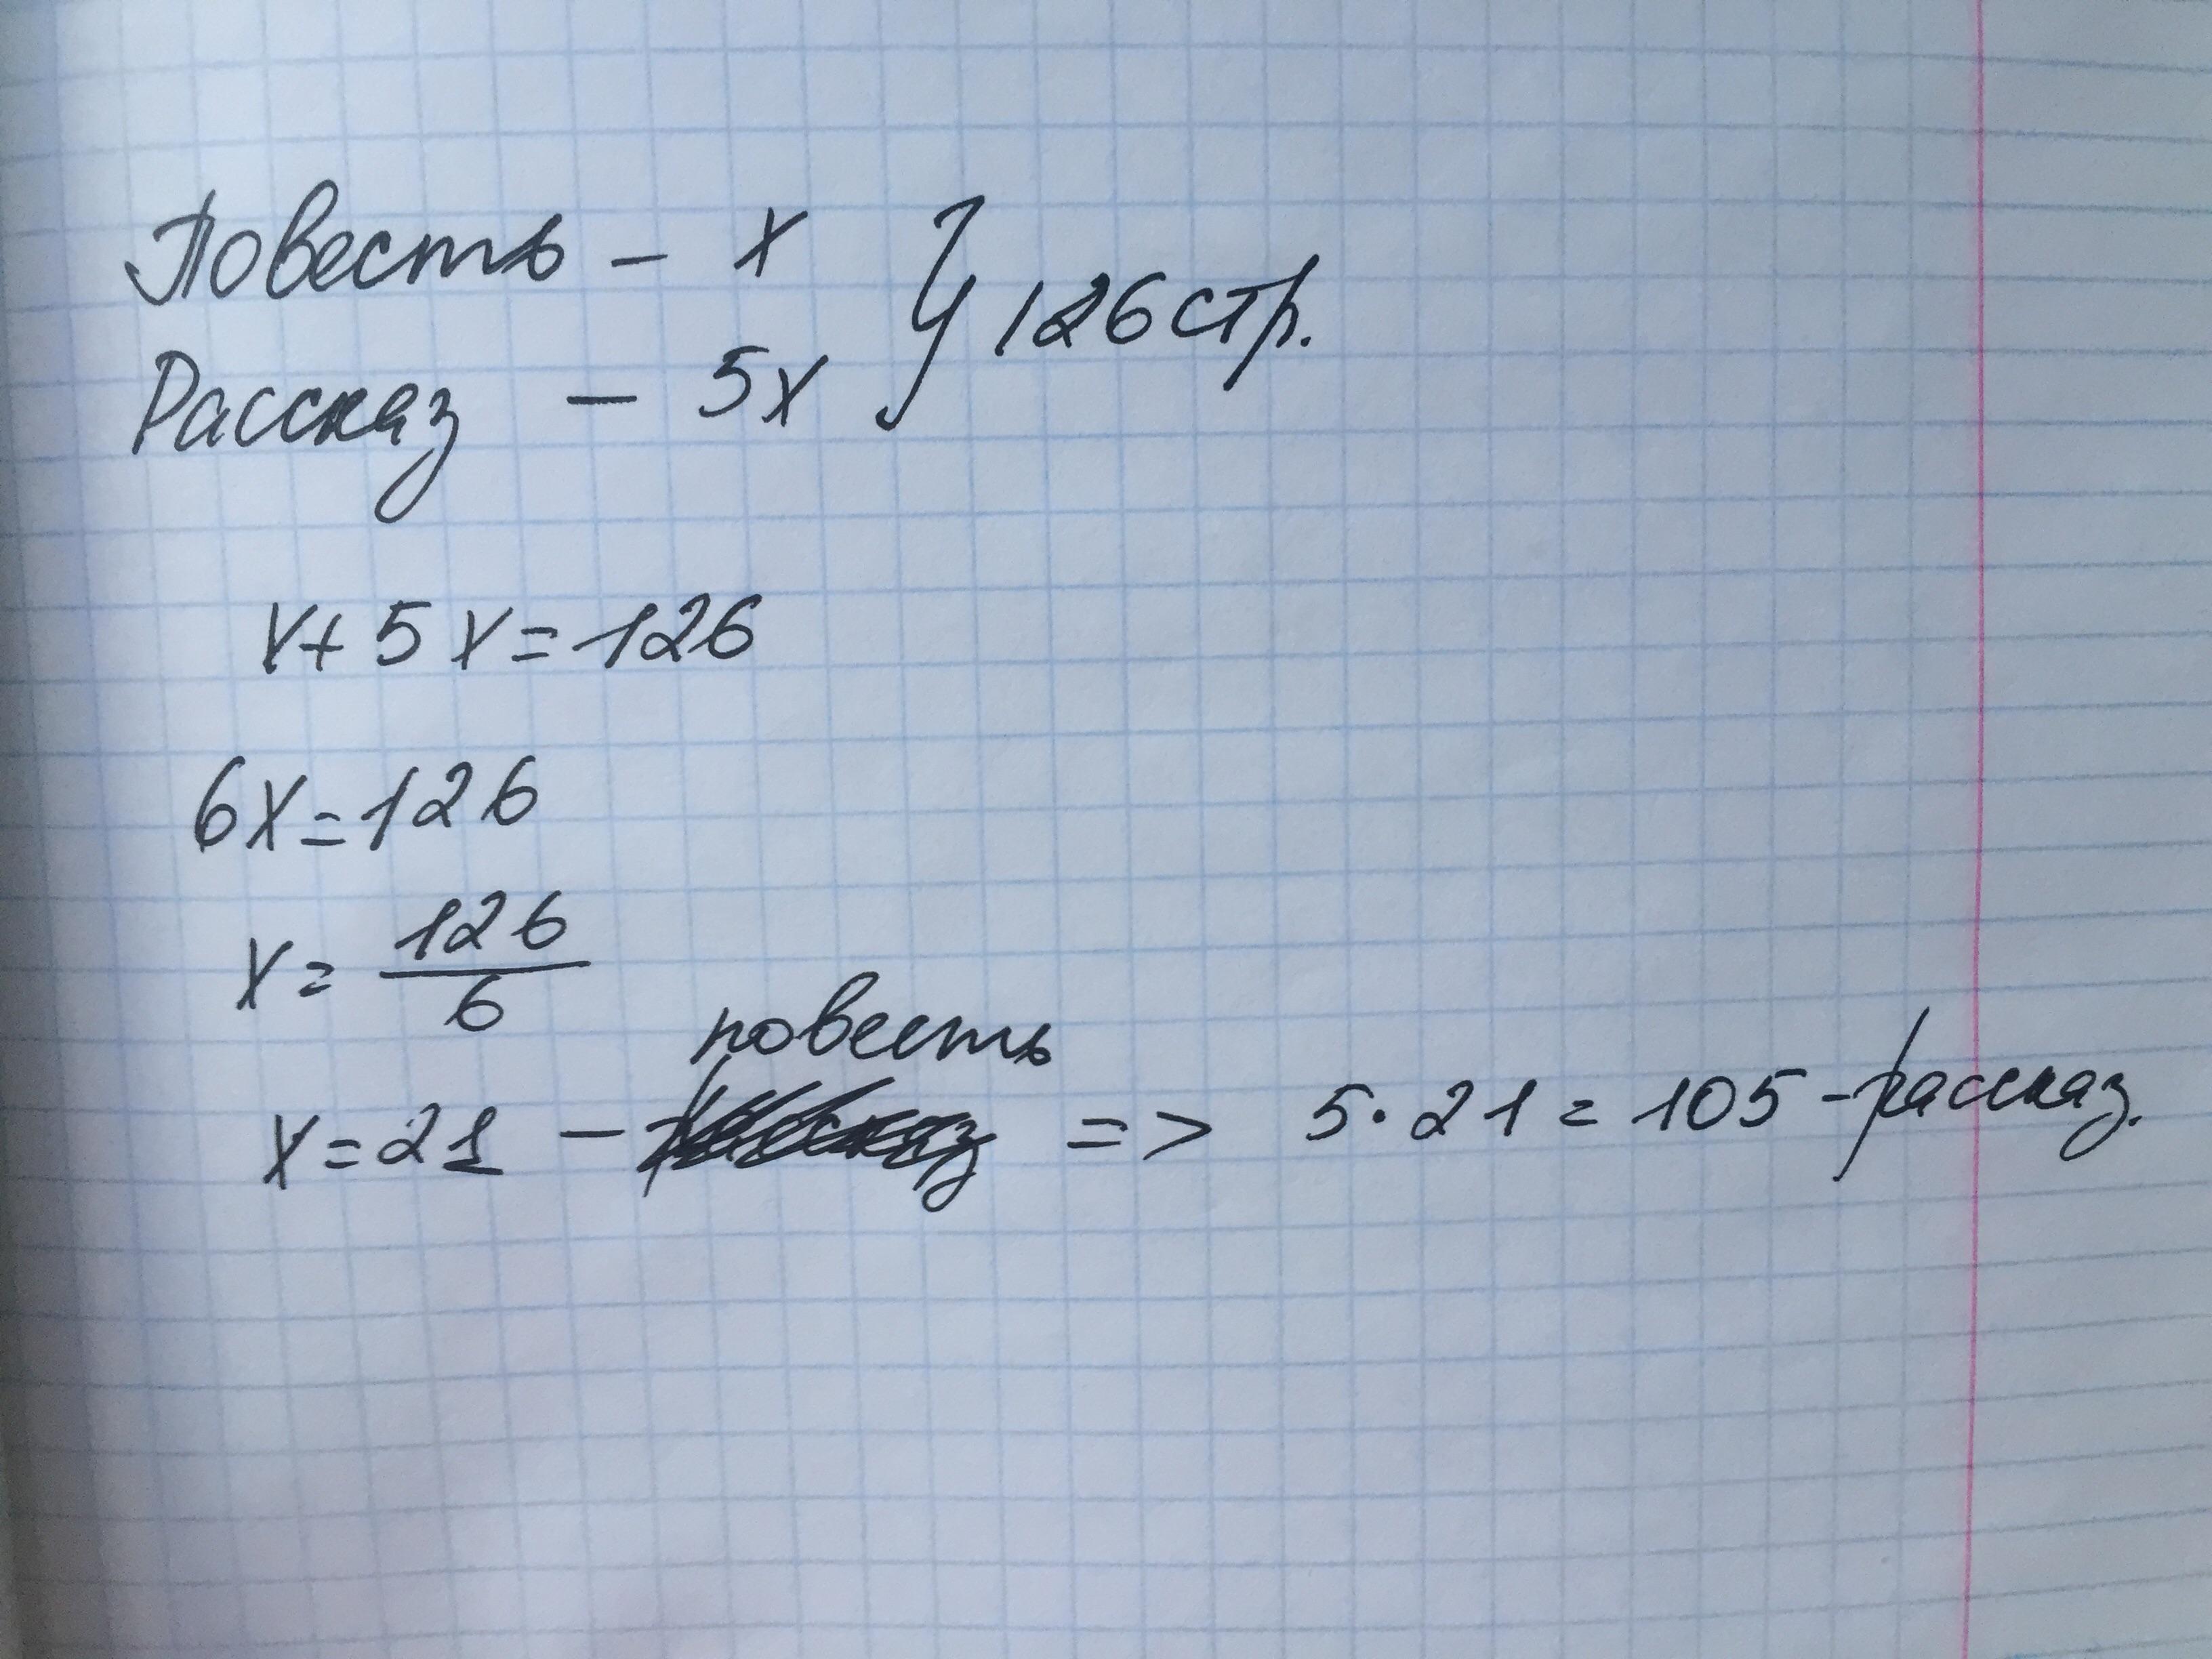 Повесть - x
} 126 стр.
Рассказ - 5x
x + 5x = 126
6x = 126
x = 126/6
повесть
x = 21 - => 5·21 = 105 - рассказ.